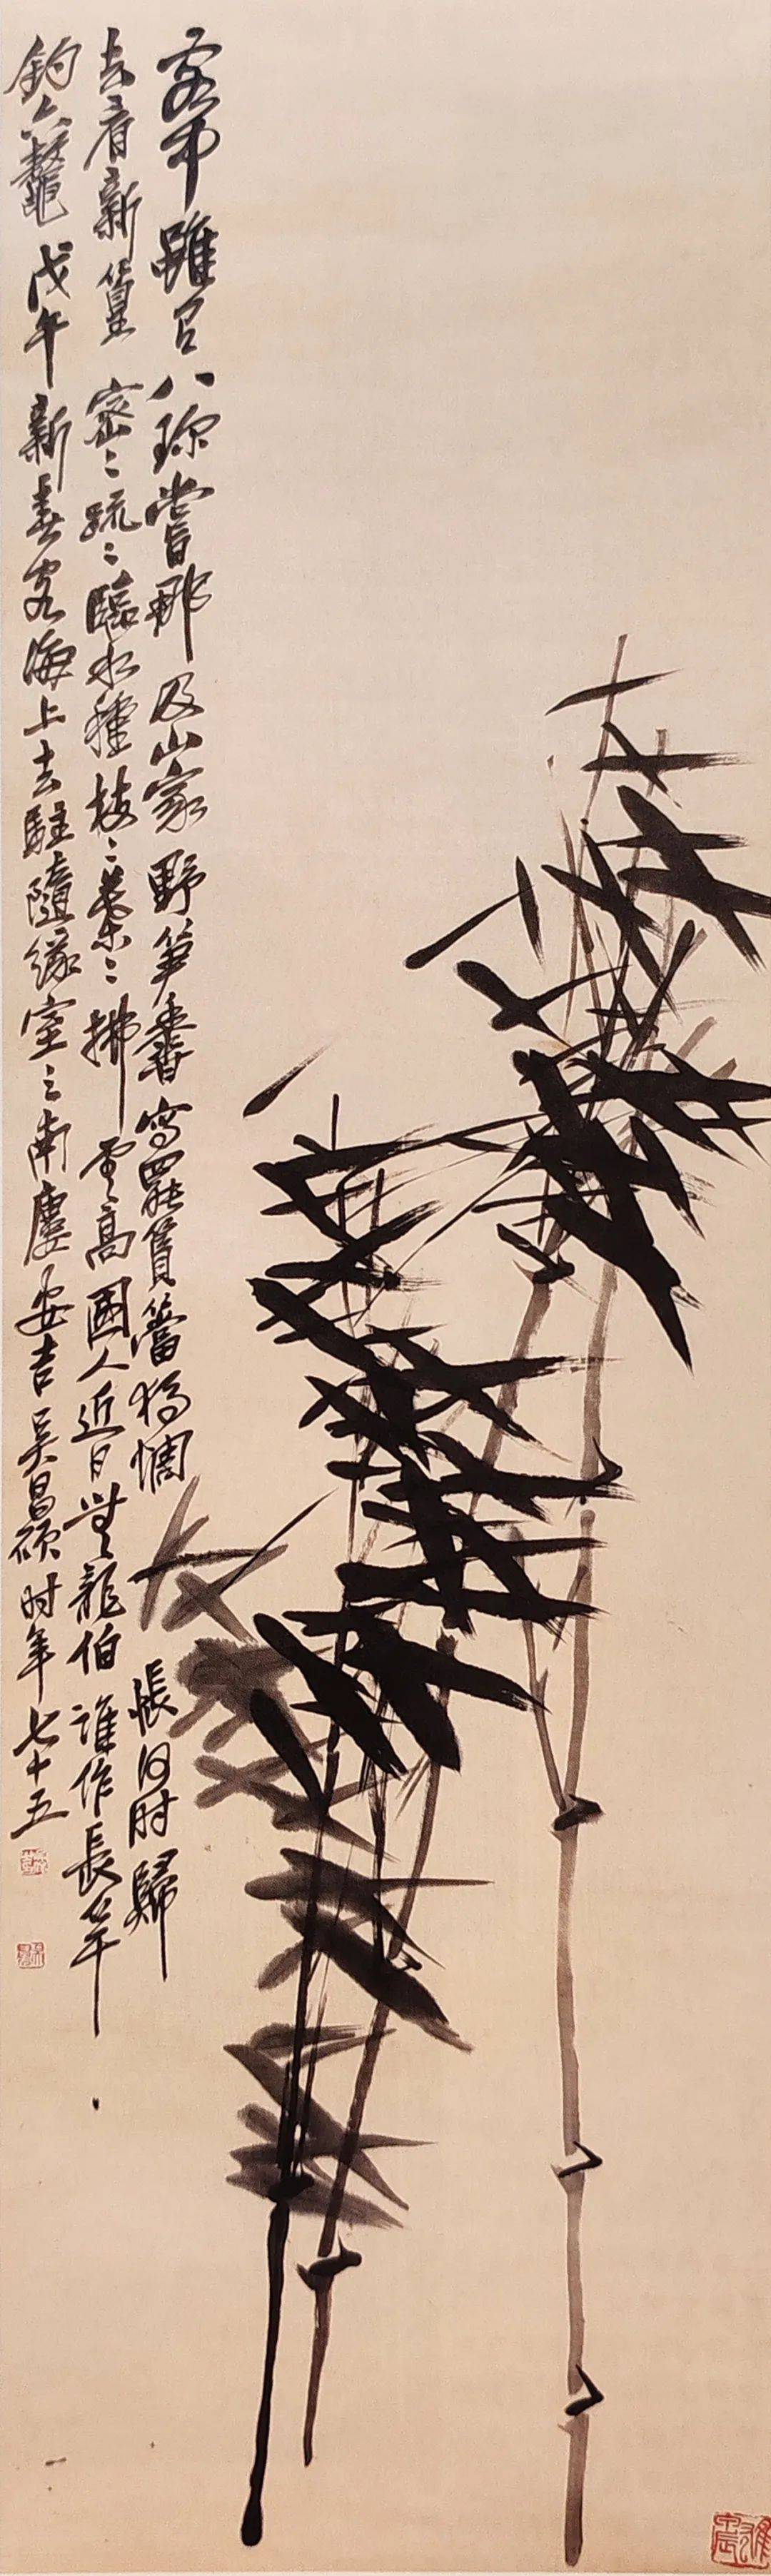 客中雖有八珍嘗那及山家野笋香寫罷篔簹獨惆悵何時歸
去看新篁密密疏疏臨水種枝枝葉葉拂雲高國人近日無龍伯誰作長竿
釣六鼇戊午新春客海上去駐隨緣室之南廔安吉吳昌碩時年七十五